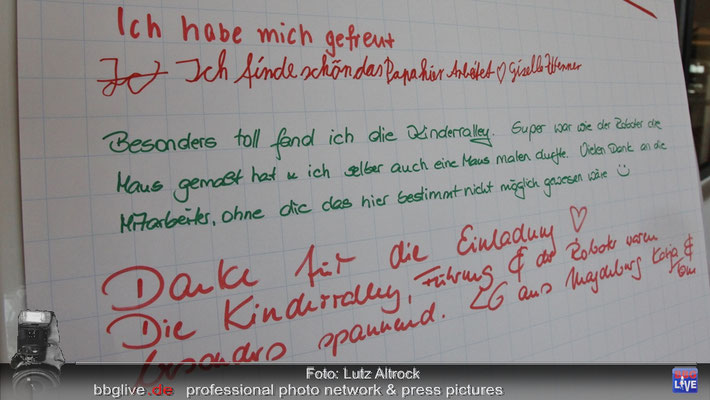 Ich habe mich gefreut
Ich finde schön das Papa hier Arbeitet ♡ Giselle
Besonders toll fand ich die Kinderralley. Super war wie der Roboter die
Maus gemalt hat u ich selber auch eine Maus malen durfte. Vielen Dank an die
Mitarbeiter, ohne die das hier bestimmt nicht möglich gewesen wäre
Danke für die Einladung ♡
Die Kinderralley, Führung & der Roboter waren
besonders spannend. LG aus Magdeburg Katja &
Tom
Foto: Lutz Altrock
bbglive.de professional photo network & press pictures
LIVE